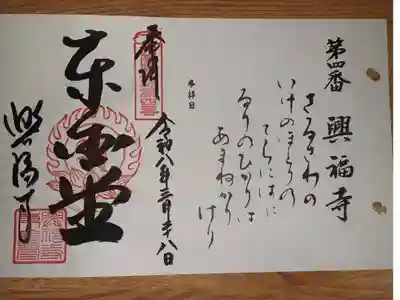 第四番 興福寺
さるさわの
いけのほとりの
てらにはに
るりのひかりは
あまねかり
けり
参拝日
令和八年三月二十八日
奉拝
東金堂
興福寺